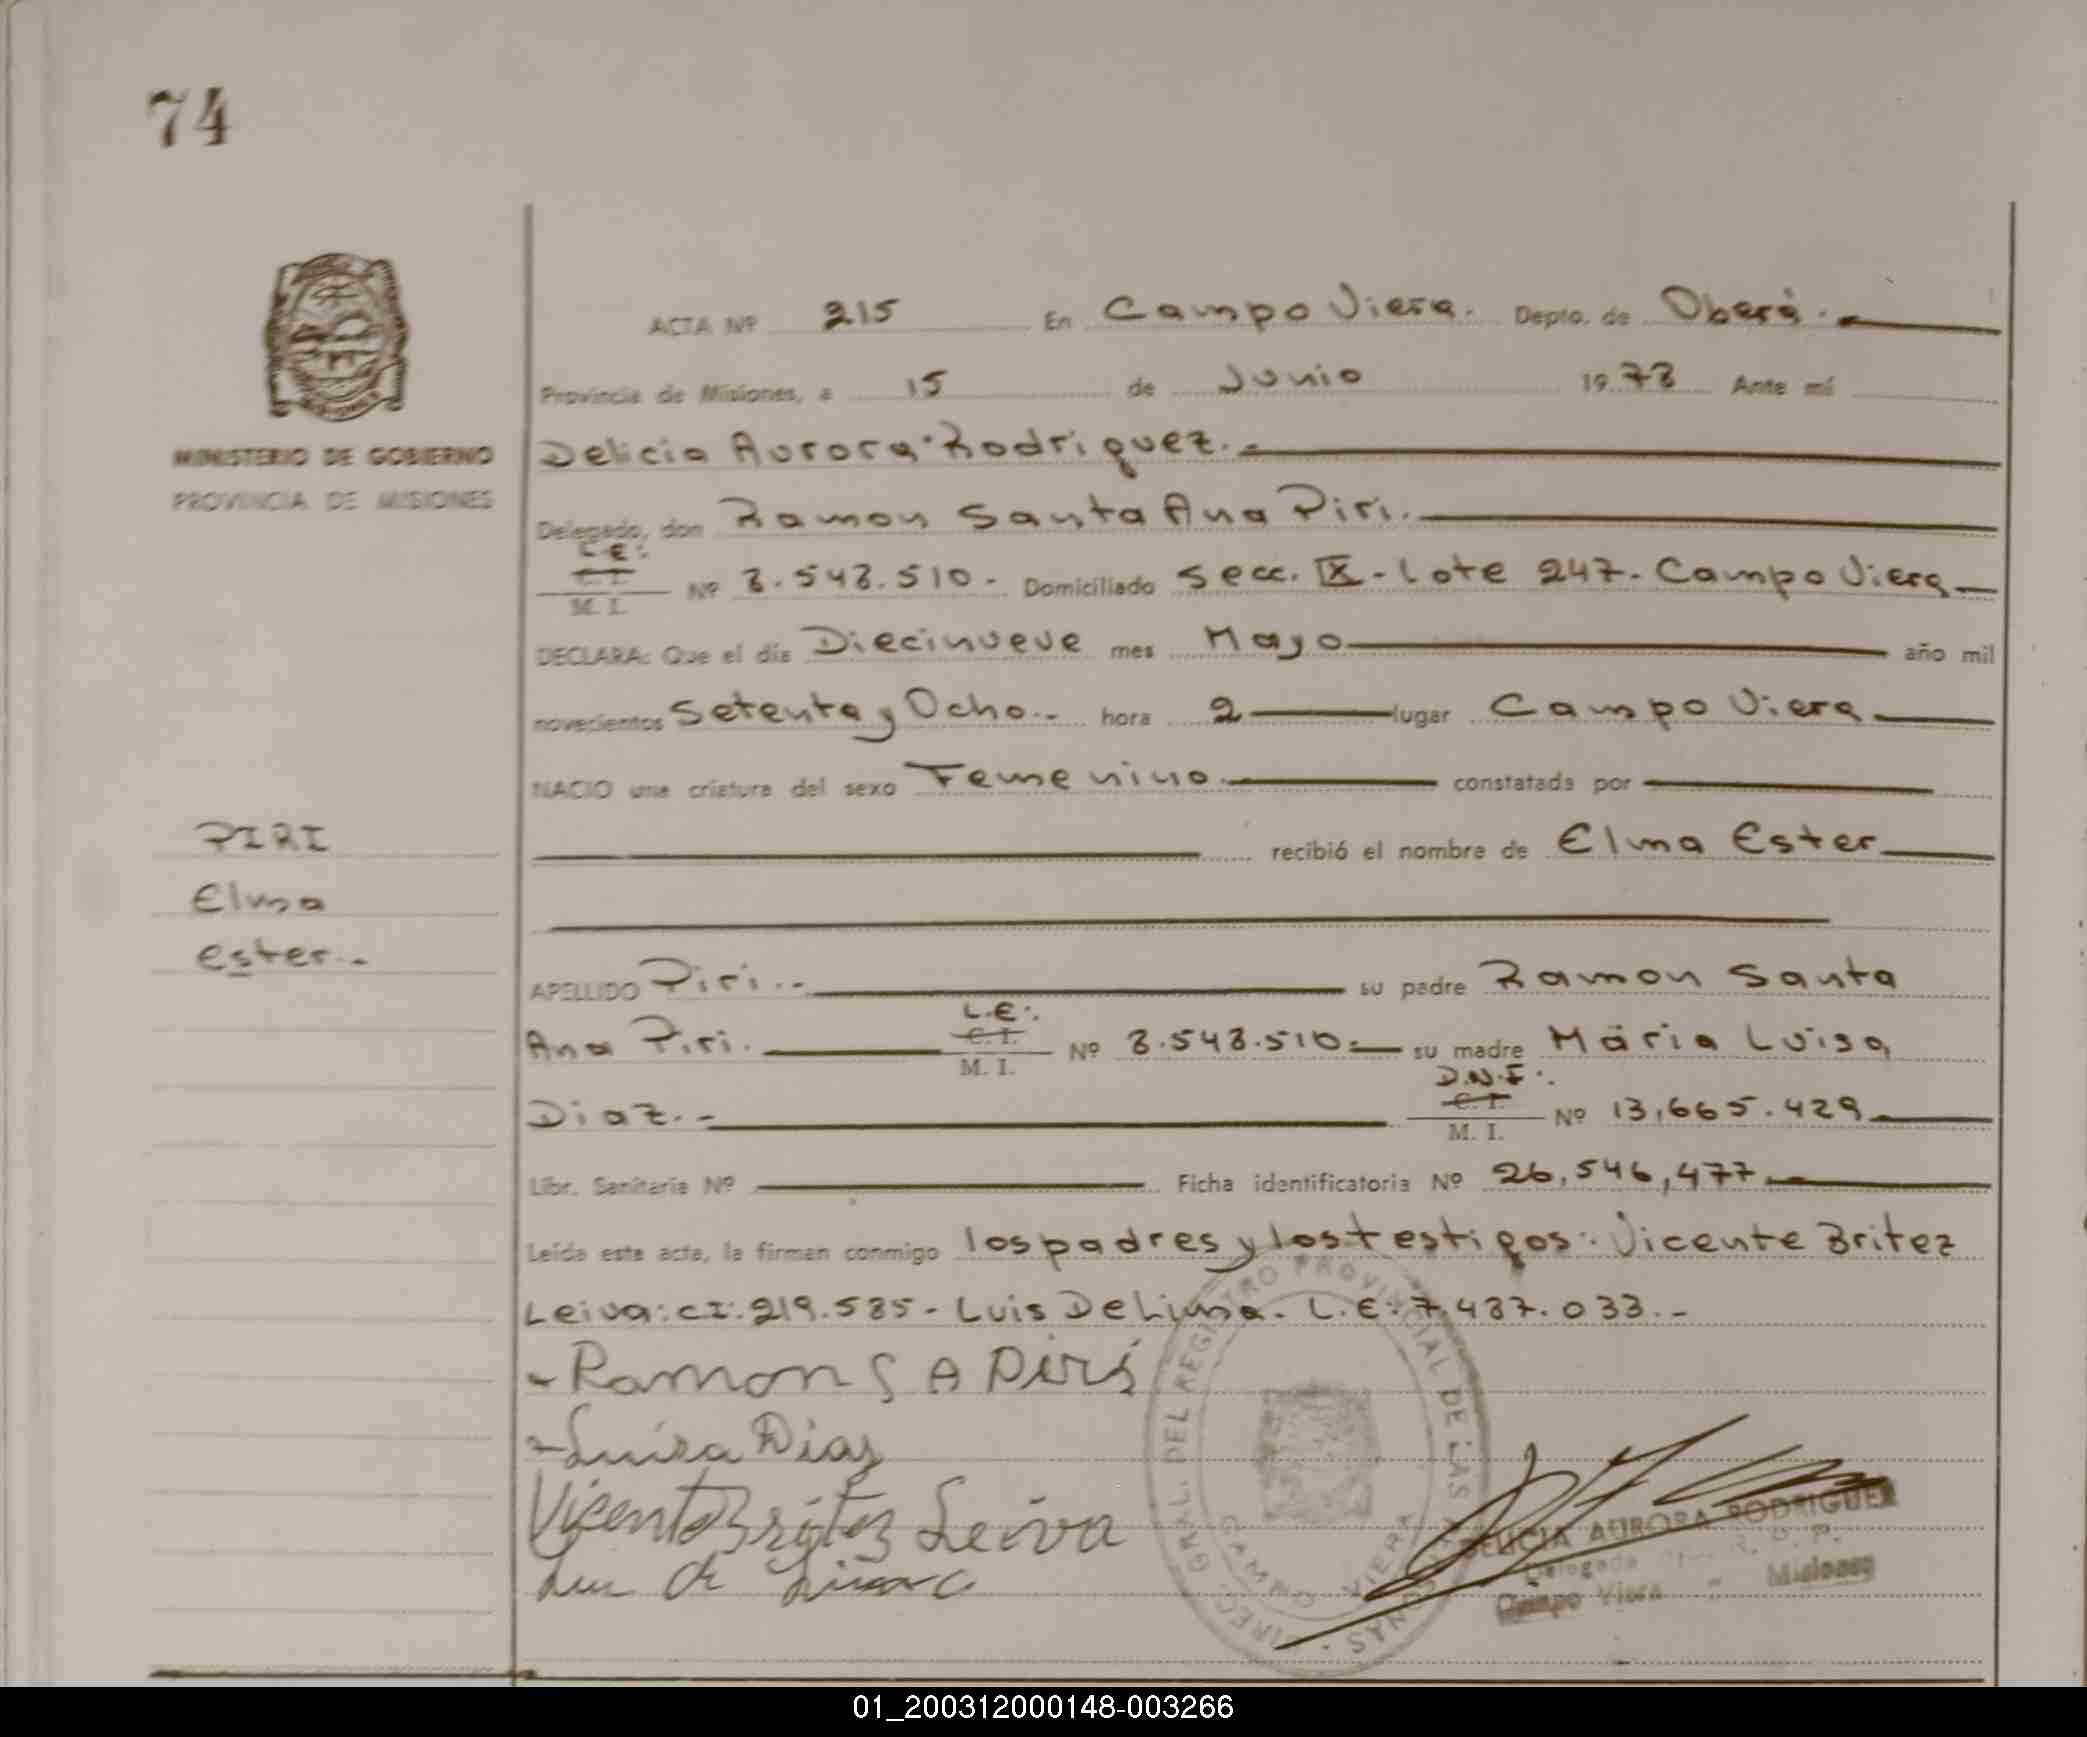 74
ACTA Nº 215 En Campo Viera. Depto. de Oberá.
Provincia de Misiones, a 15 de Junio 1978 Ante mí
MINISTERIO DE GOBIERNO
PROVINCIA DE MISIONES
Delicia Aurora Rodriguez.
Delegado, don Ramon Santa Ana Piri.
L.E:
C. I.
M. I.
Nº 8.548.510. Domiciliado Secc. IX - Lote 247. Campo Viera
DECLARA: Que el día Diecinueve mes Mayo año mil
novecientos Setenta y Ocho.. hora 2 lugar Campo Viera
NACIO una criatura del sexo Femenino. constatada por
recibió el nombre de Elma Ester
PIRI
Elma
Ester..
APELLIDO Piri.. su padre Ramon Santa
Ana Piri. L.E:. C. I. M. I. Nº 8.548.510. su madre Maria Luisa
Diaz.. D.N.I. C. I. M. I. Nº 13,665.429
Libr. Sanitaria Nº Ficha identificatoria Nº 26,546,477
Leída este acta, la firman conmigo los padres y los testigos: Vicente Britez
Leiva: CI: 219.585 - Luis De Lima. L.E: 7.487.033.-
Ramon S A Piri
Luisa Dias
Vicente Britez Leiva
DIREC. GRAL. DEL REGISTRO PROVINCIAL DE LAS PERSONAS
CAMPO VIERA
DELICIA AURORA RODRIGUEZ
Delegada R. P. P.
Campo Viera - Misiones
01_200312000148-003266